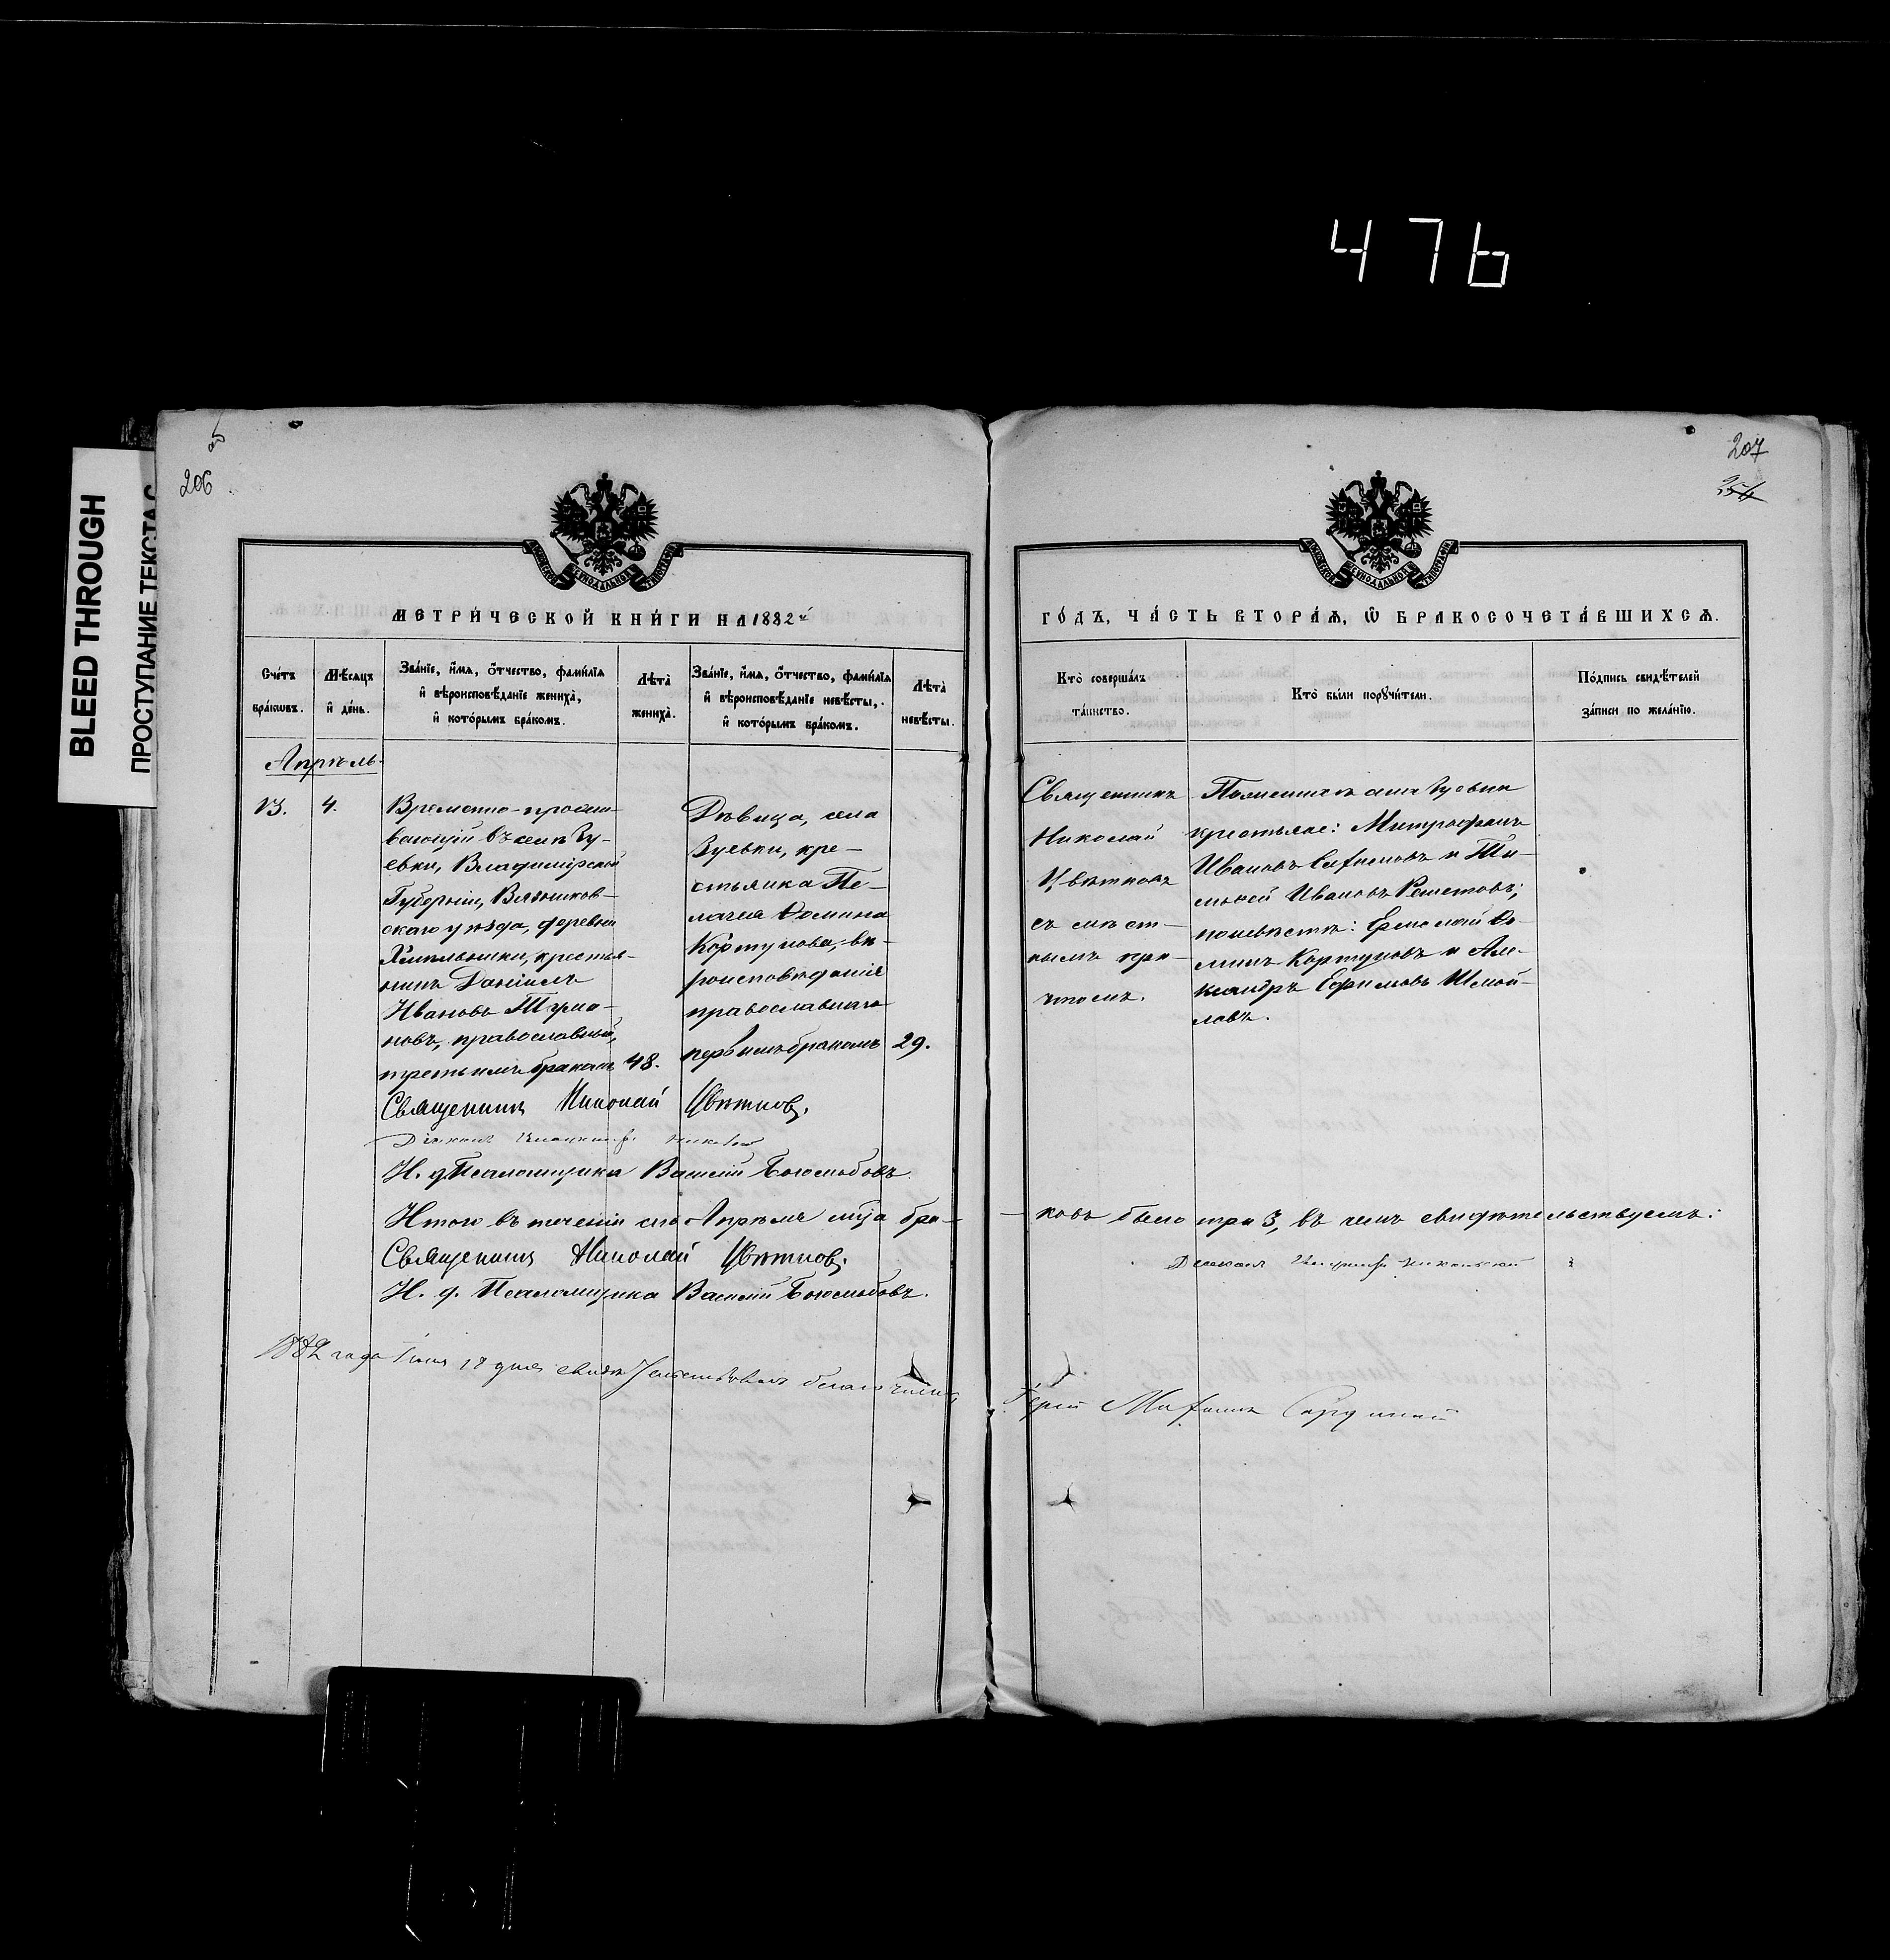 476
BLEED THROUGH
ПРОСТУПАНИЕ ТЕКСТА С
206
207
МЕТРИ́ЧЕСКОЙ КНИ́ГИ НА 1882й
ГО́ДЪ, ЧА́СТЬ ВТОРА́Ѧ, Ѽ БРАКОСОЧЕТА́ВШИХСѦ.
Сче́тъ бра́кѡвъ.
Мѣ́сѧцъ и҆ де́нь.
Зва́нїе, и҆́мѧ, ѻ҆́тчество, фами́лїѧ и҆ вѣроисповѣ́данїе жениха̀, и҆ кото́рымъ бра́комъ.
Лѣта̀ жениха̀.
Зва́нїе, и҆́мѧ, ѻ҆́тчество, фами́лїѧ и҆ вѣроисповѣ́данїе невѣ́сты, и҆ кото́рымъ бра́комъ.
Лѣта̀ невѣ́сты.
Кто̀ соверша́лъ та́инство.
Кто̀ бы́ли порꙋчи́тели.
По́дпись свидѣ́телей за́писи по жела́нїю.
Апрѣль.
13.
4.
Временно-прожи-
вающій въ селѣ Зу-
евки, Владимірской
Губерніи, Вязников-
скаго уѣзда, деревни
крестья-
нинъ Даніилъ
Ивановъ
новъ, православный,
третьимъ бракомъ
48.
Дѣвица, села
Зуевки, кре-
стьянка Пе-
лагея Фомина
Кортунова, вѣ-
роисповѣданія
православнаго
первымъ бракомъ
29.
Священникъ
Николай
Цвѣтковъ
съ мѣст-
нымъ при-
чтомъ.
По женихѣ села Зуевки
крестьяне: Митрофанъ
Ивановъ и Ти-
мофей Ивановъ Решетовъ;
по невѣстѣ: Ермолай Фо-
минъ Кортуновъ и Але-
ксандръ Ефимовъ Шмой-
ловъ.
Священникъ Николай Цвѣтковъ.
Діаконъ
И. д. Псаломщика Василій Боголюбовъ.
Итого въ теченіи сего Апрѣля мца бра-
ковъ было три 3, въ чемъ свидѣтельствуемъ:
Священникъ Николай Цвѣтковъ.
Діаконъ Никольскій
И. д. Псаломщика Василій Боголюбовъ.
1882 года Іюня 18 дня свидѣтельствовалъ благочинный
Іерей